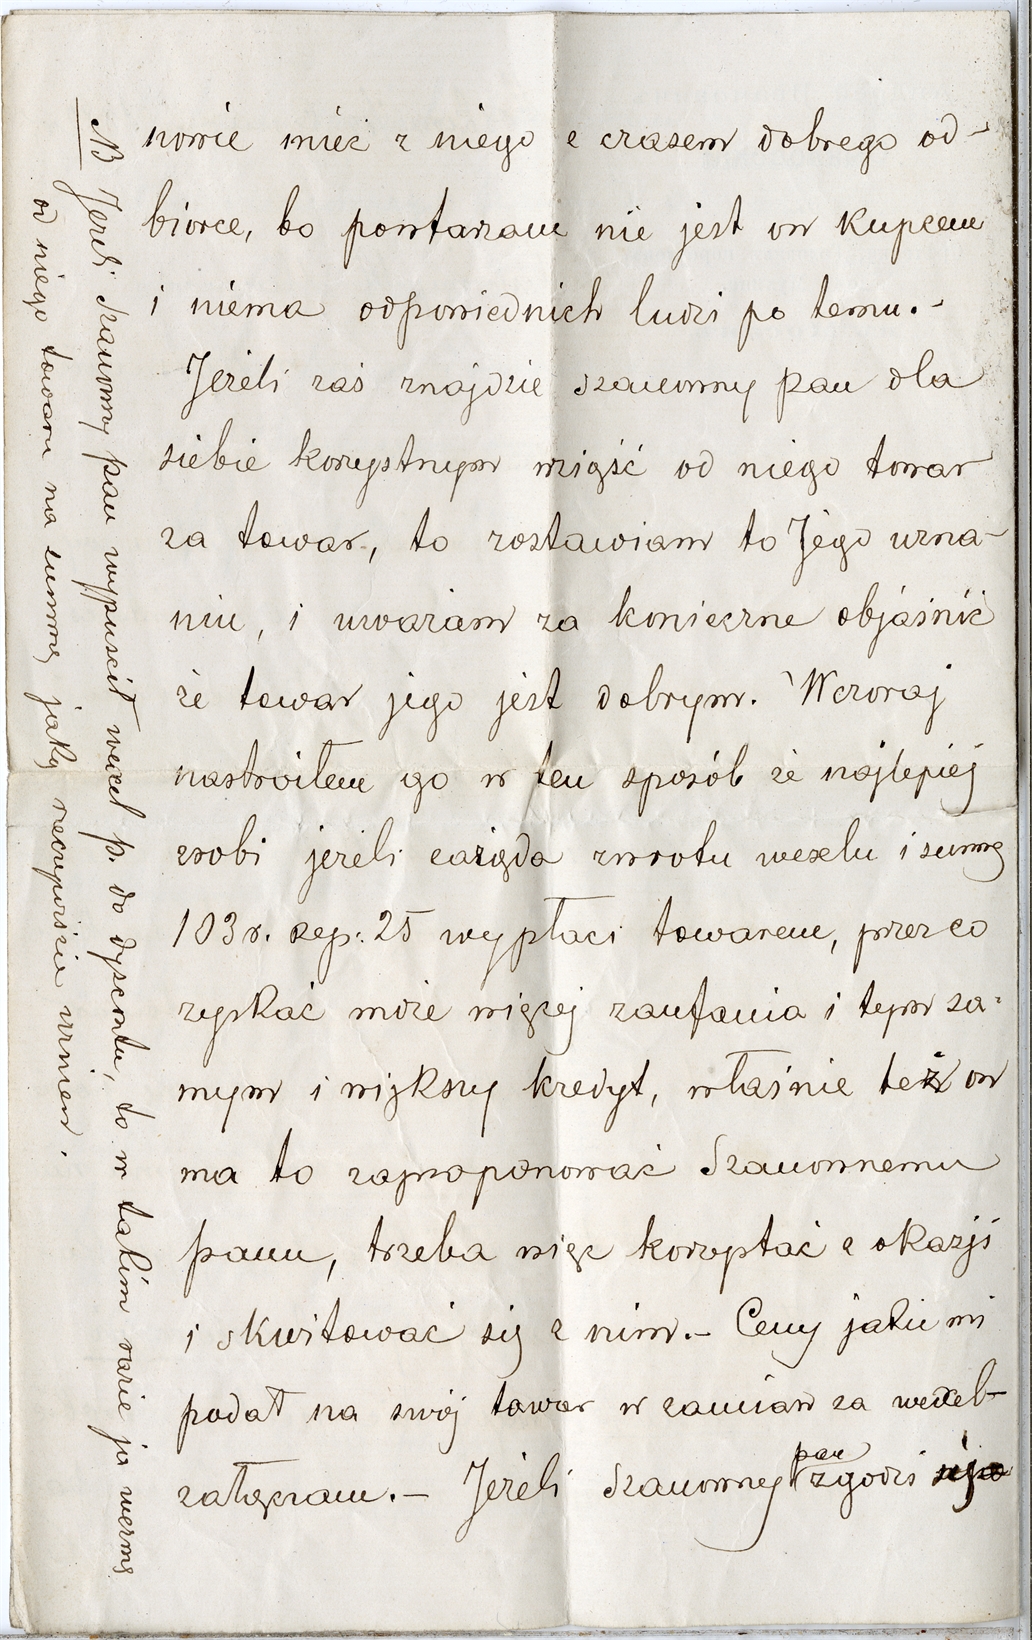 nowie mieć z niego z czasem dobrego od-
biorce, bo powtarzam nie jest on kupcem
i niema odpowiednich ludzi po temu.-
Jeżeli zaś znajdzie szanowny pan dla
siebie korzystnym wziąść od niego towar
za towar, to zostawiam to Jego uzna-
niu, i uważam za konieczne objaśnić
że towar jego jest dobrym. Wczoraj
nastroiłem go w ten sposób że najlepiej
zrobi jeżeli zażąda zwrotu wexlu i summę
103 r. kop: 25 wypłaci towarem, przez co
zyskać może więcej zaufania i tym sa-
mym i większy kredyt, właśnie też on
ma to zaproponować Szanownemu
panu, trzeba więc korzystać z okazji
i skwitować się z nim.- Ceny jakie mi
podał na swój towar w zamian za wexel
załączam.- Jeżeli Szanowny pan zgodzi się
NB Jeżeli szanowny pan wypuścił wexel p. do dyscontu, to w takim razie ja wezmę
od niego towaru na summę jaką rzeczywiście winien.